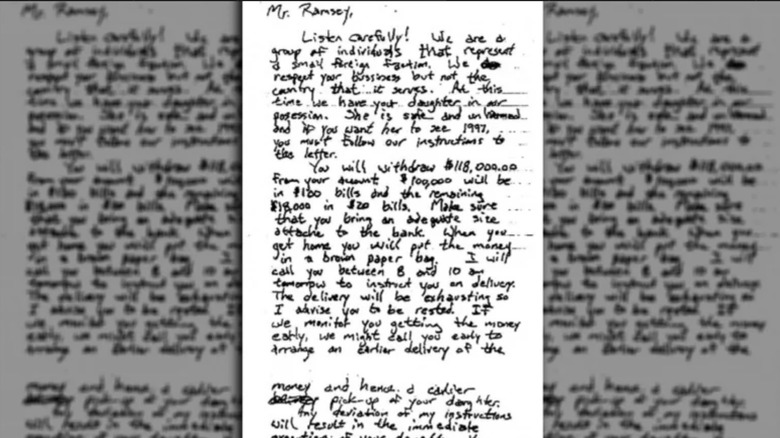 Mr. Ramsey,
Listen carefully! We are a
group of individuals that represent
a small foreign faction. We do
respect your bussiness but not the
country that it serves. At this
time we have your daughter in our
posession. She is safe and unharmed
and if you want her to see 1997,
you must follow our instructions to
the letter.
You will withdraw $118,000.00
from your account. $100,000 will be
in $100 bills and the remaining
$18,000 in $20 bills. Make sure
that you bring an adequate size
attache to the bank. When you
get home you will put the money
in a brown paper bag. I will
call you between 8 and 10 am
tomorrow to instruct you on delivery.
The delivery will be exhausting so
I advise you to be rested. If
we monitor you getting the money
early, we might call you early to
arrange an earlier delivery of the
money and hence a earlier
pick-up of your daughter.
Any deviation of my instructions
will result in the immediate